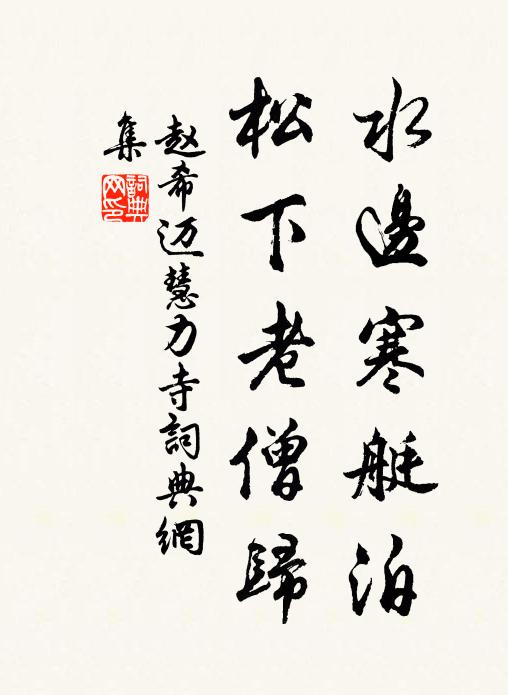 水邊寒艇泊
松下老僧歸
赵希迈慧力寺詞典網
集
詞典網印